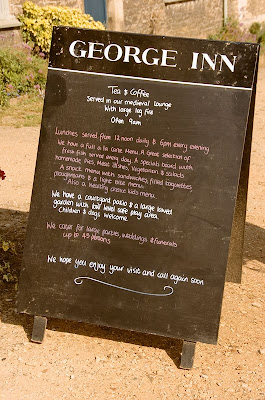 GEORGE INN
Tea & Coffee
Served in our medieval lounge
With large log fire
from 9am
Lunches served from 12 noon daily & 6pm every evening
We have a full a la carte Menu. A Great selection of
fresh fish served every day. A specials board with
homemade Pies, Meat dishes, Vegetarian & salads
A snack menu with sandwiches, filled baguettes
ploughmans & a light bite menu.
Also a healthy choice kids menu
We have a courtyard patio & a large tiered
garden with low level safe play area
Children & dogs welcome
We cater for large parties, weddings & funerals
up to 45 persons
We hope you enjoy your visit and call again soon